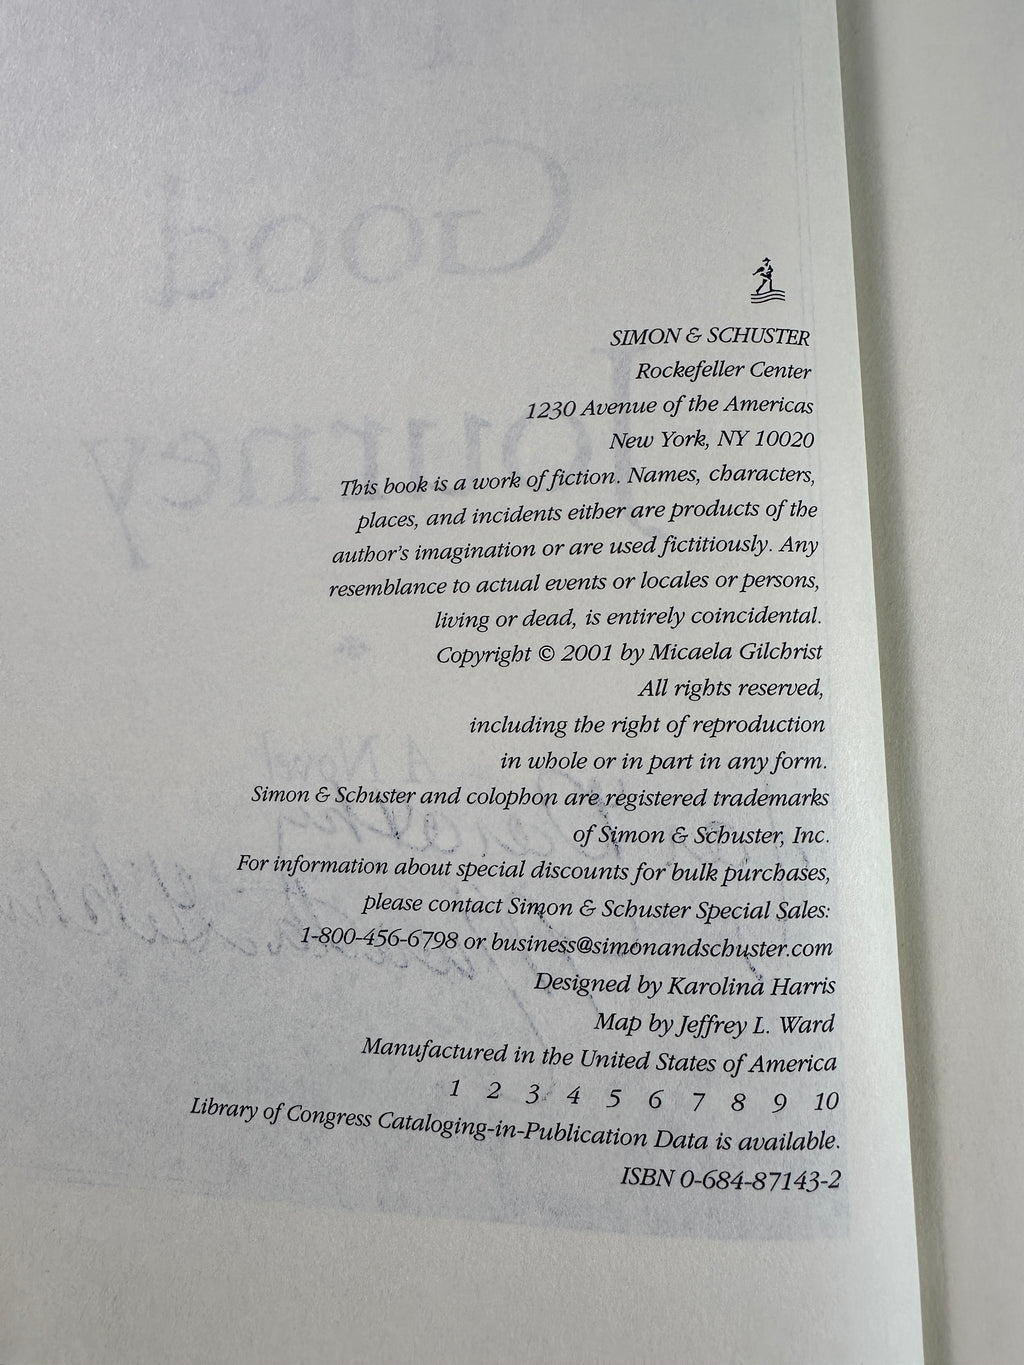 Good
Journey
A Novel
SIMON & SCHUSTER
Rockefeller Center
1230 Avenue of the Americas
New York, NY 10020
This book is a work of fiction. Names, characters,
places, and incidents either are products of the
author's imagination or are used fictitiously. Any
resemblance to actual events or locales or persons,
living or dead, is entirely coincidental.
Copyright © 2001 by Micaela Gilchrist
All rights reserved,
including the right of reproduction
in whole or in part in any form.
Simon & Schuster and colophon are registered trademarks
of Simon & Schuster, Inc.
For information about special discounts for bulk purchases,
please contact Simon & Schuster Special Sales:
1-800-456-6798 or business@simonandschuster.com
Designed by Karolina Harris
Map by Jeffrey L. Ward
Manufactured in the United States of America
1 2 3 4 5 6 7 8 9 10
Library of Congress Cataloging-in-Publication Data is available.
ISBN 0-684-87143-2